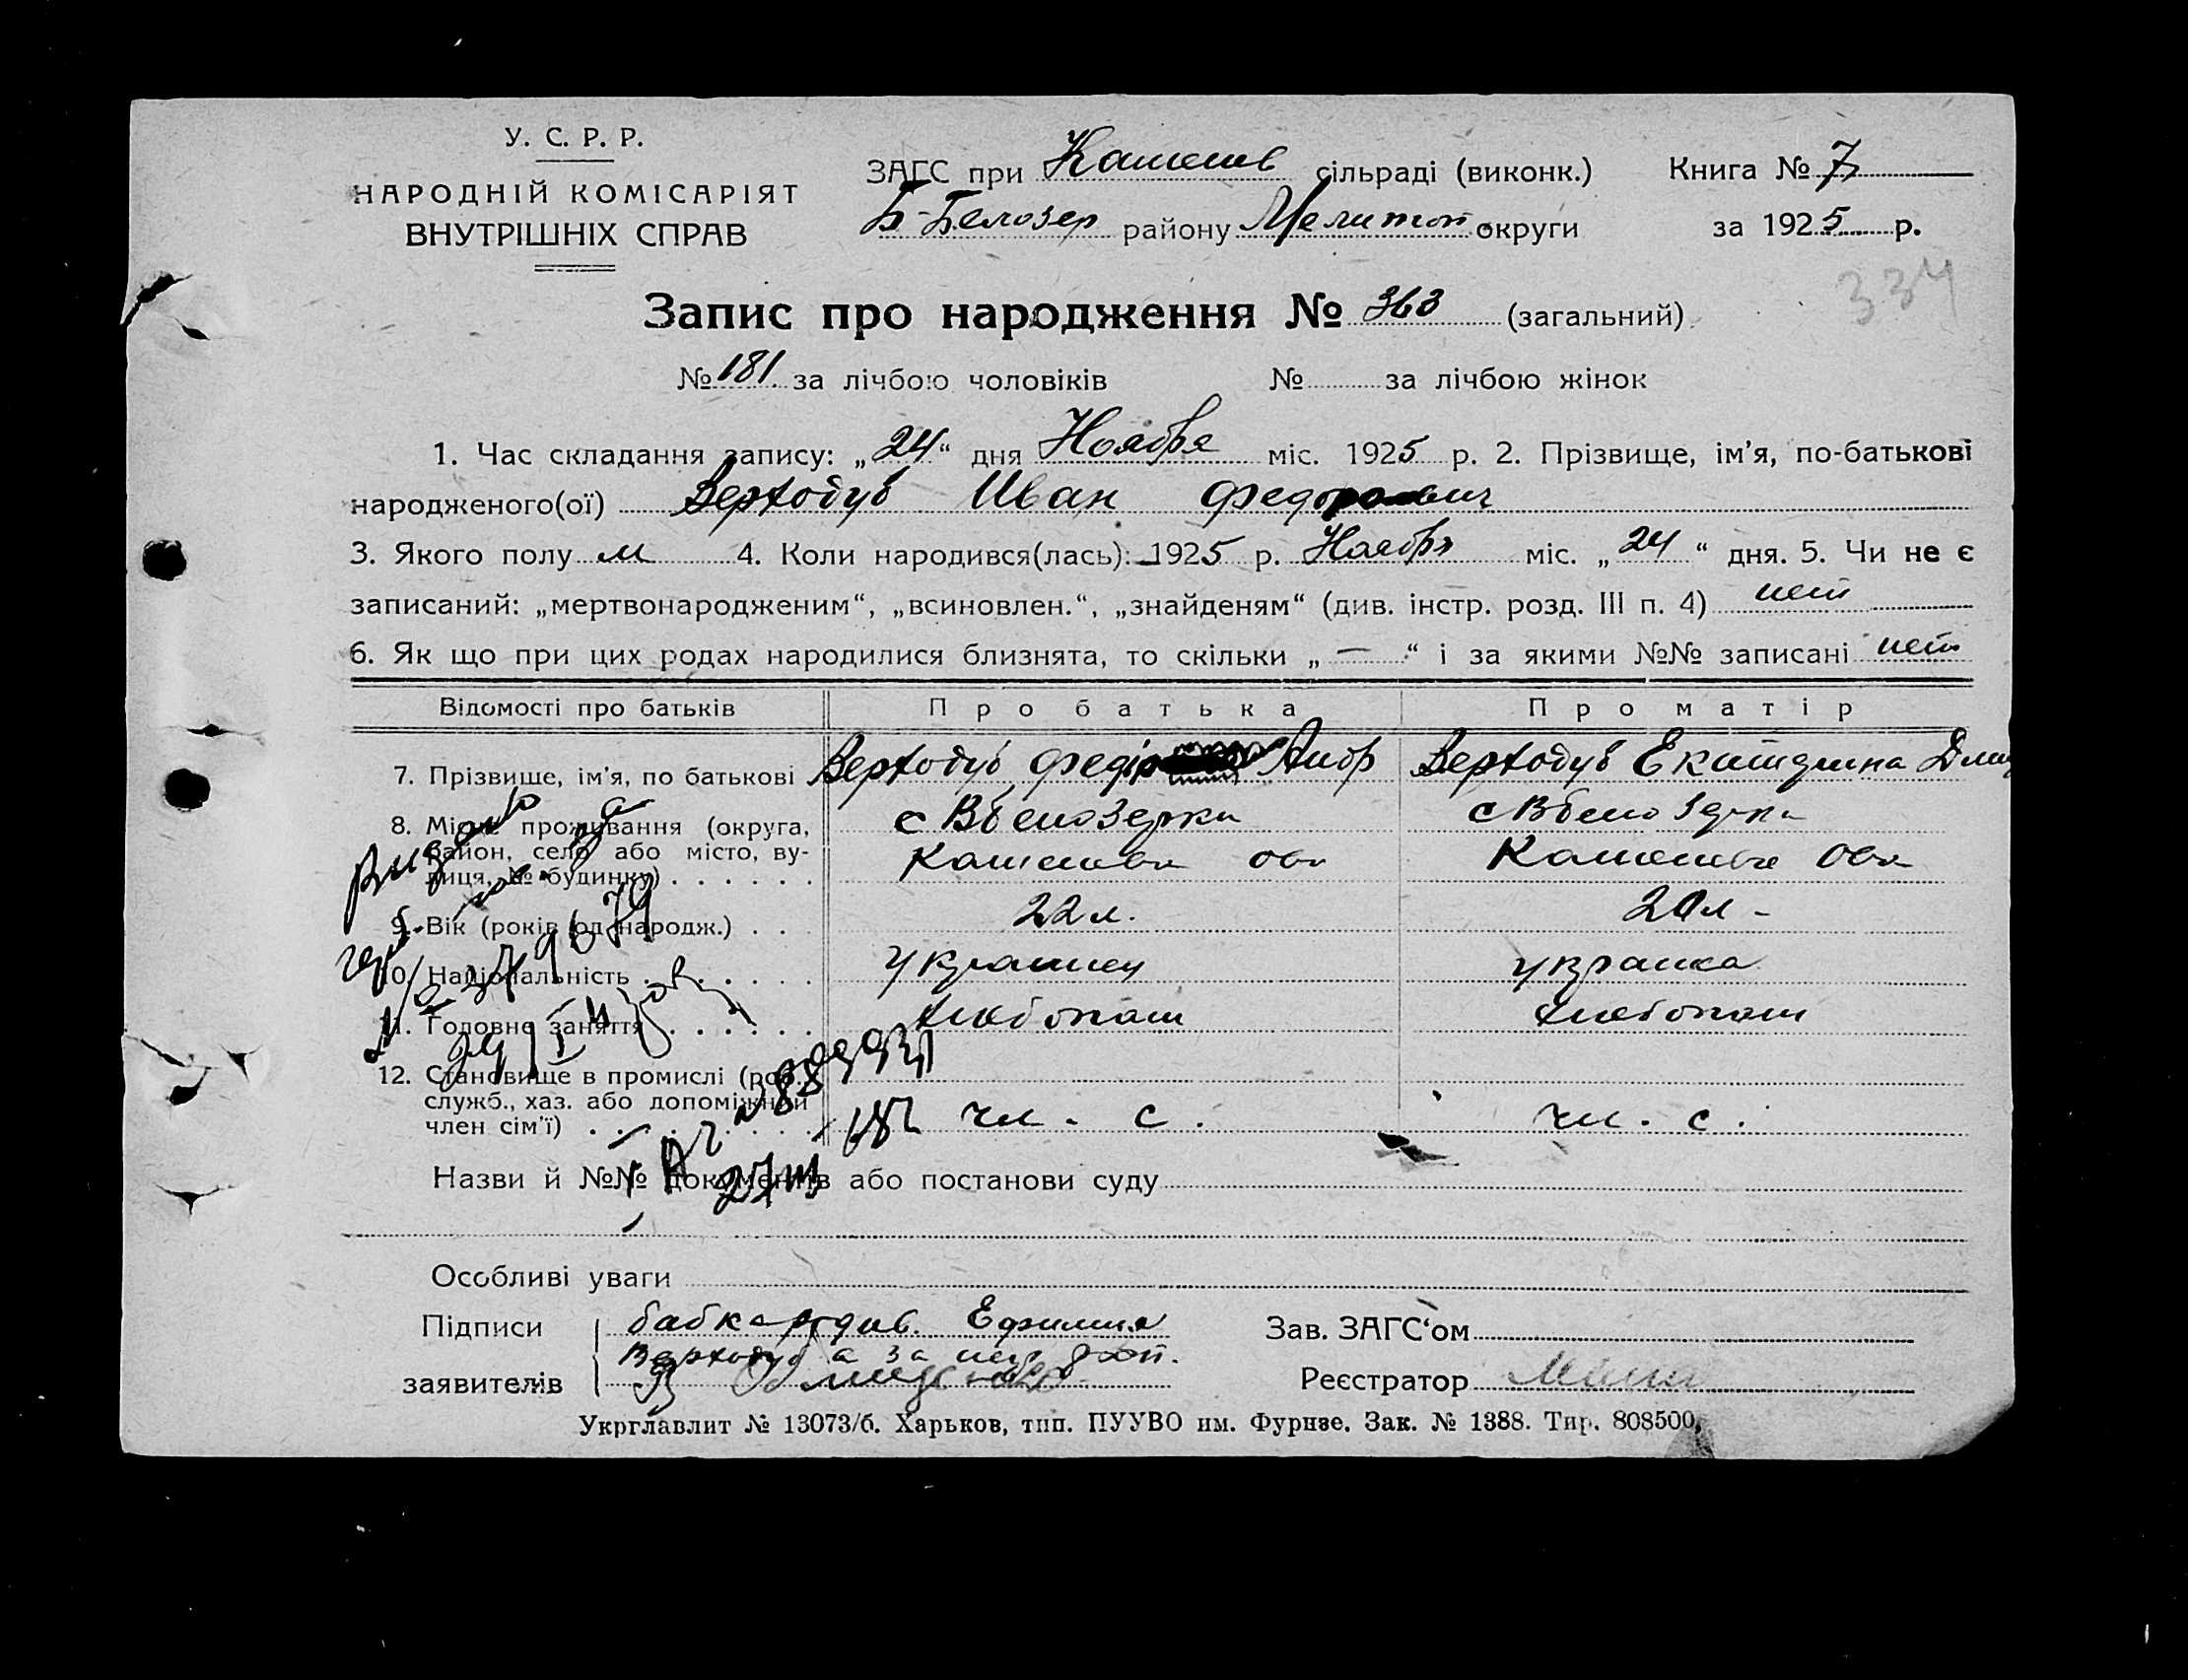 У. С. Р. Р.
НАРОДНІЙ КОМІСАРІЯТ
ВНУТРІШНІХ СПРАВ
ЗАГС при сільраді (виконк.) Книга № 7
Б-Белозер району Мелитоп округи за 1925 р.
334
Запис про народження № 363 (загальний)
№ 181 за лічбою чоловіків № за лічбою жінок
1. Час складання запису: „24“ дня Ноября міс. 1925 р. 2. Прізвище, ім’я, по-батькові
народженого(ої) Верходуб Иван Федорович
3. Якого полу м 4. Коли народився(лась): 1925 р. Ноября міс. „24“ дня. 5. Чи не є
записаний: „мертвонародженим“, „всиновлен.“, „знайденям“ (див. інстр. розд. III п. 4) нет
6. Як що при цих родах народилися близнята, то скільки „—“ і за якими №№ записані нет
Відомості про батьків Про батька Про матір
7. Прізвище, ім’я, по батькові Верходуб Федір Андр Верходуб Екатерина Дми
8. Місце проживання (округа,
район, село або місто, ву-
лиця, № будинку)
9. Вік (років од народж.) 22 л. 20 л -
10. Національність украинец украинка
11. Головне заняття хлебопаш хлебопаш
12. Становище в промислі (роб.,
служб., хаз. або допоміжний
член сім’ї) чл. с. чл. с.
Назви й №№ документів або постанови суду
Особливі уваги
Підписи бабка Ефимия Зав. ЗАГС‘ом
Верходуб а за нея
заявителів Реєстратор
Укрглавлит № 13073/б. Харьков, тип. ПУУВО им. Фрунзе. Зак. № 1388. Тир. 808500.